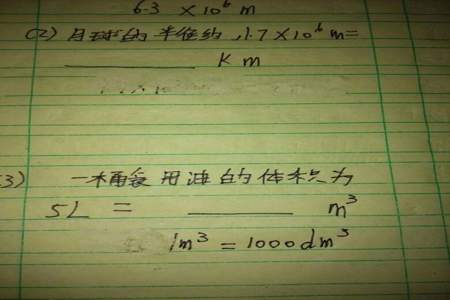 6.3 ×10⁶ m
(2) 月球的半径约 1.7×10⁶ m=
____________ Km
3) 一桶食用油的体积为
5L = __________ m³
1m³ = 1000dm³